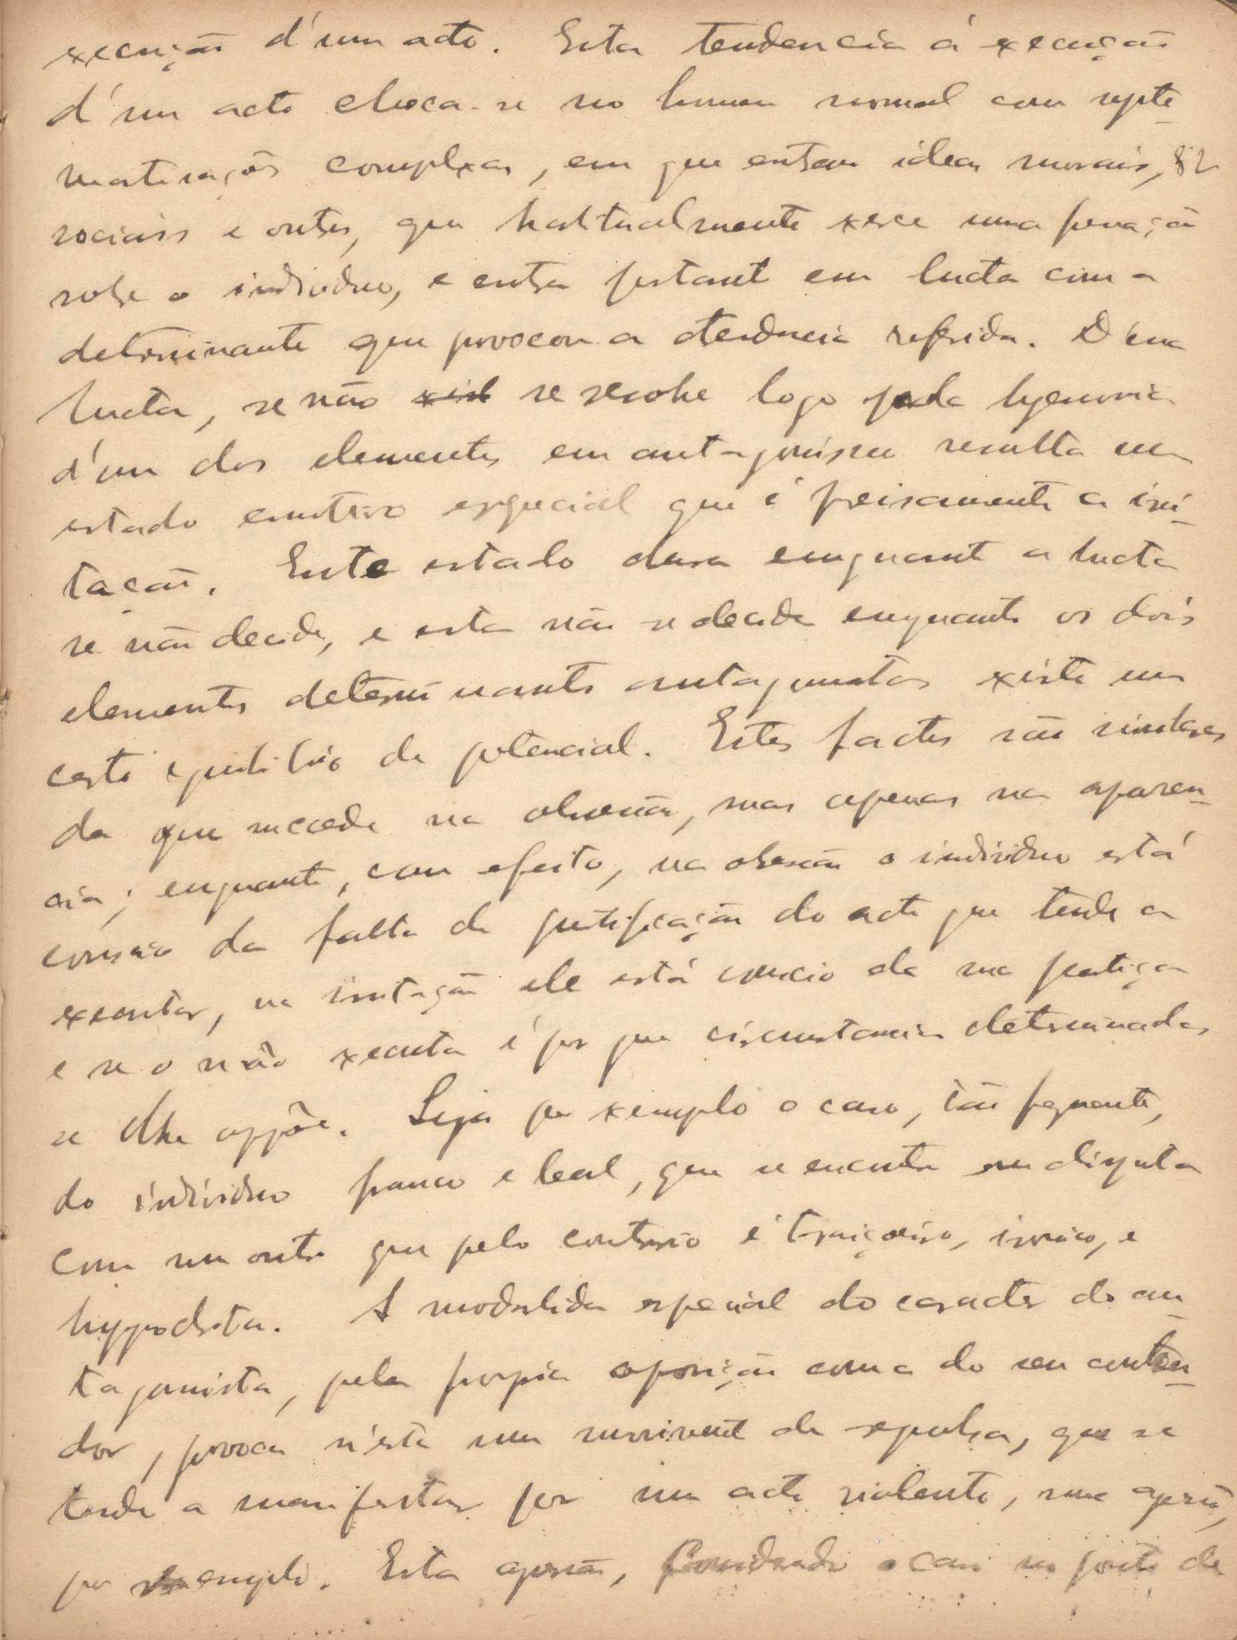 execução d'um acto. Esta tendencia á execução
d'um acto choca-se no homem normal com syste-
matisações complexas, em que entram ideas moraes,
sociaes e outras, que habitualmente exerce uma
sobre o individuo, e entra portanto em lucta com a
determinante que provocou a tendencia referida. D'esta
lucta, se não se resolve logo pela hegemonia
d'um dos elementos em antagonismo resulta um
estado emotivo especial que é precisamente a irri-
tação. Este estado dura emquanto a lucta
se não decide, e esta não se decide emquanto os dois
elementos determinantes antagonistas existe um
certo equilibrio de potencial. Estes factos são similares
do que succede na obsessão, mas apenas na aparen-
cia; emquanto, com efeito, na obsessão o individuo está
conscio da falta de justificação do acto que tende a
executar, na irritação ele está conscio da sua justiça
e se o não executa é por que circumstancias determinadas
se lhe oppõe. Seja por exemplo o caso, tão frequente,
do individuo franco e leal, que se encontra em disputa
com um outro que pelo contrario é traiçoeiro, ironico, e
hypocrita. A modalidade especial do caracter do an-
tagonista, pela propria oposição com a do seu conten-
dor, provoca n'este um movimento de repulsa, que se
tende a manifestar por um acto violento, uma agressão,
por exemplo. Esta agressão, considerado o caso no ponto de